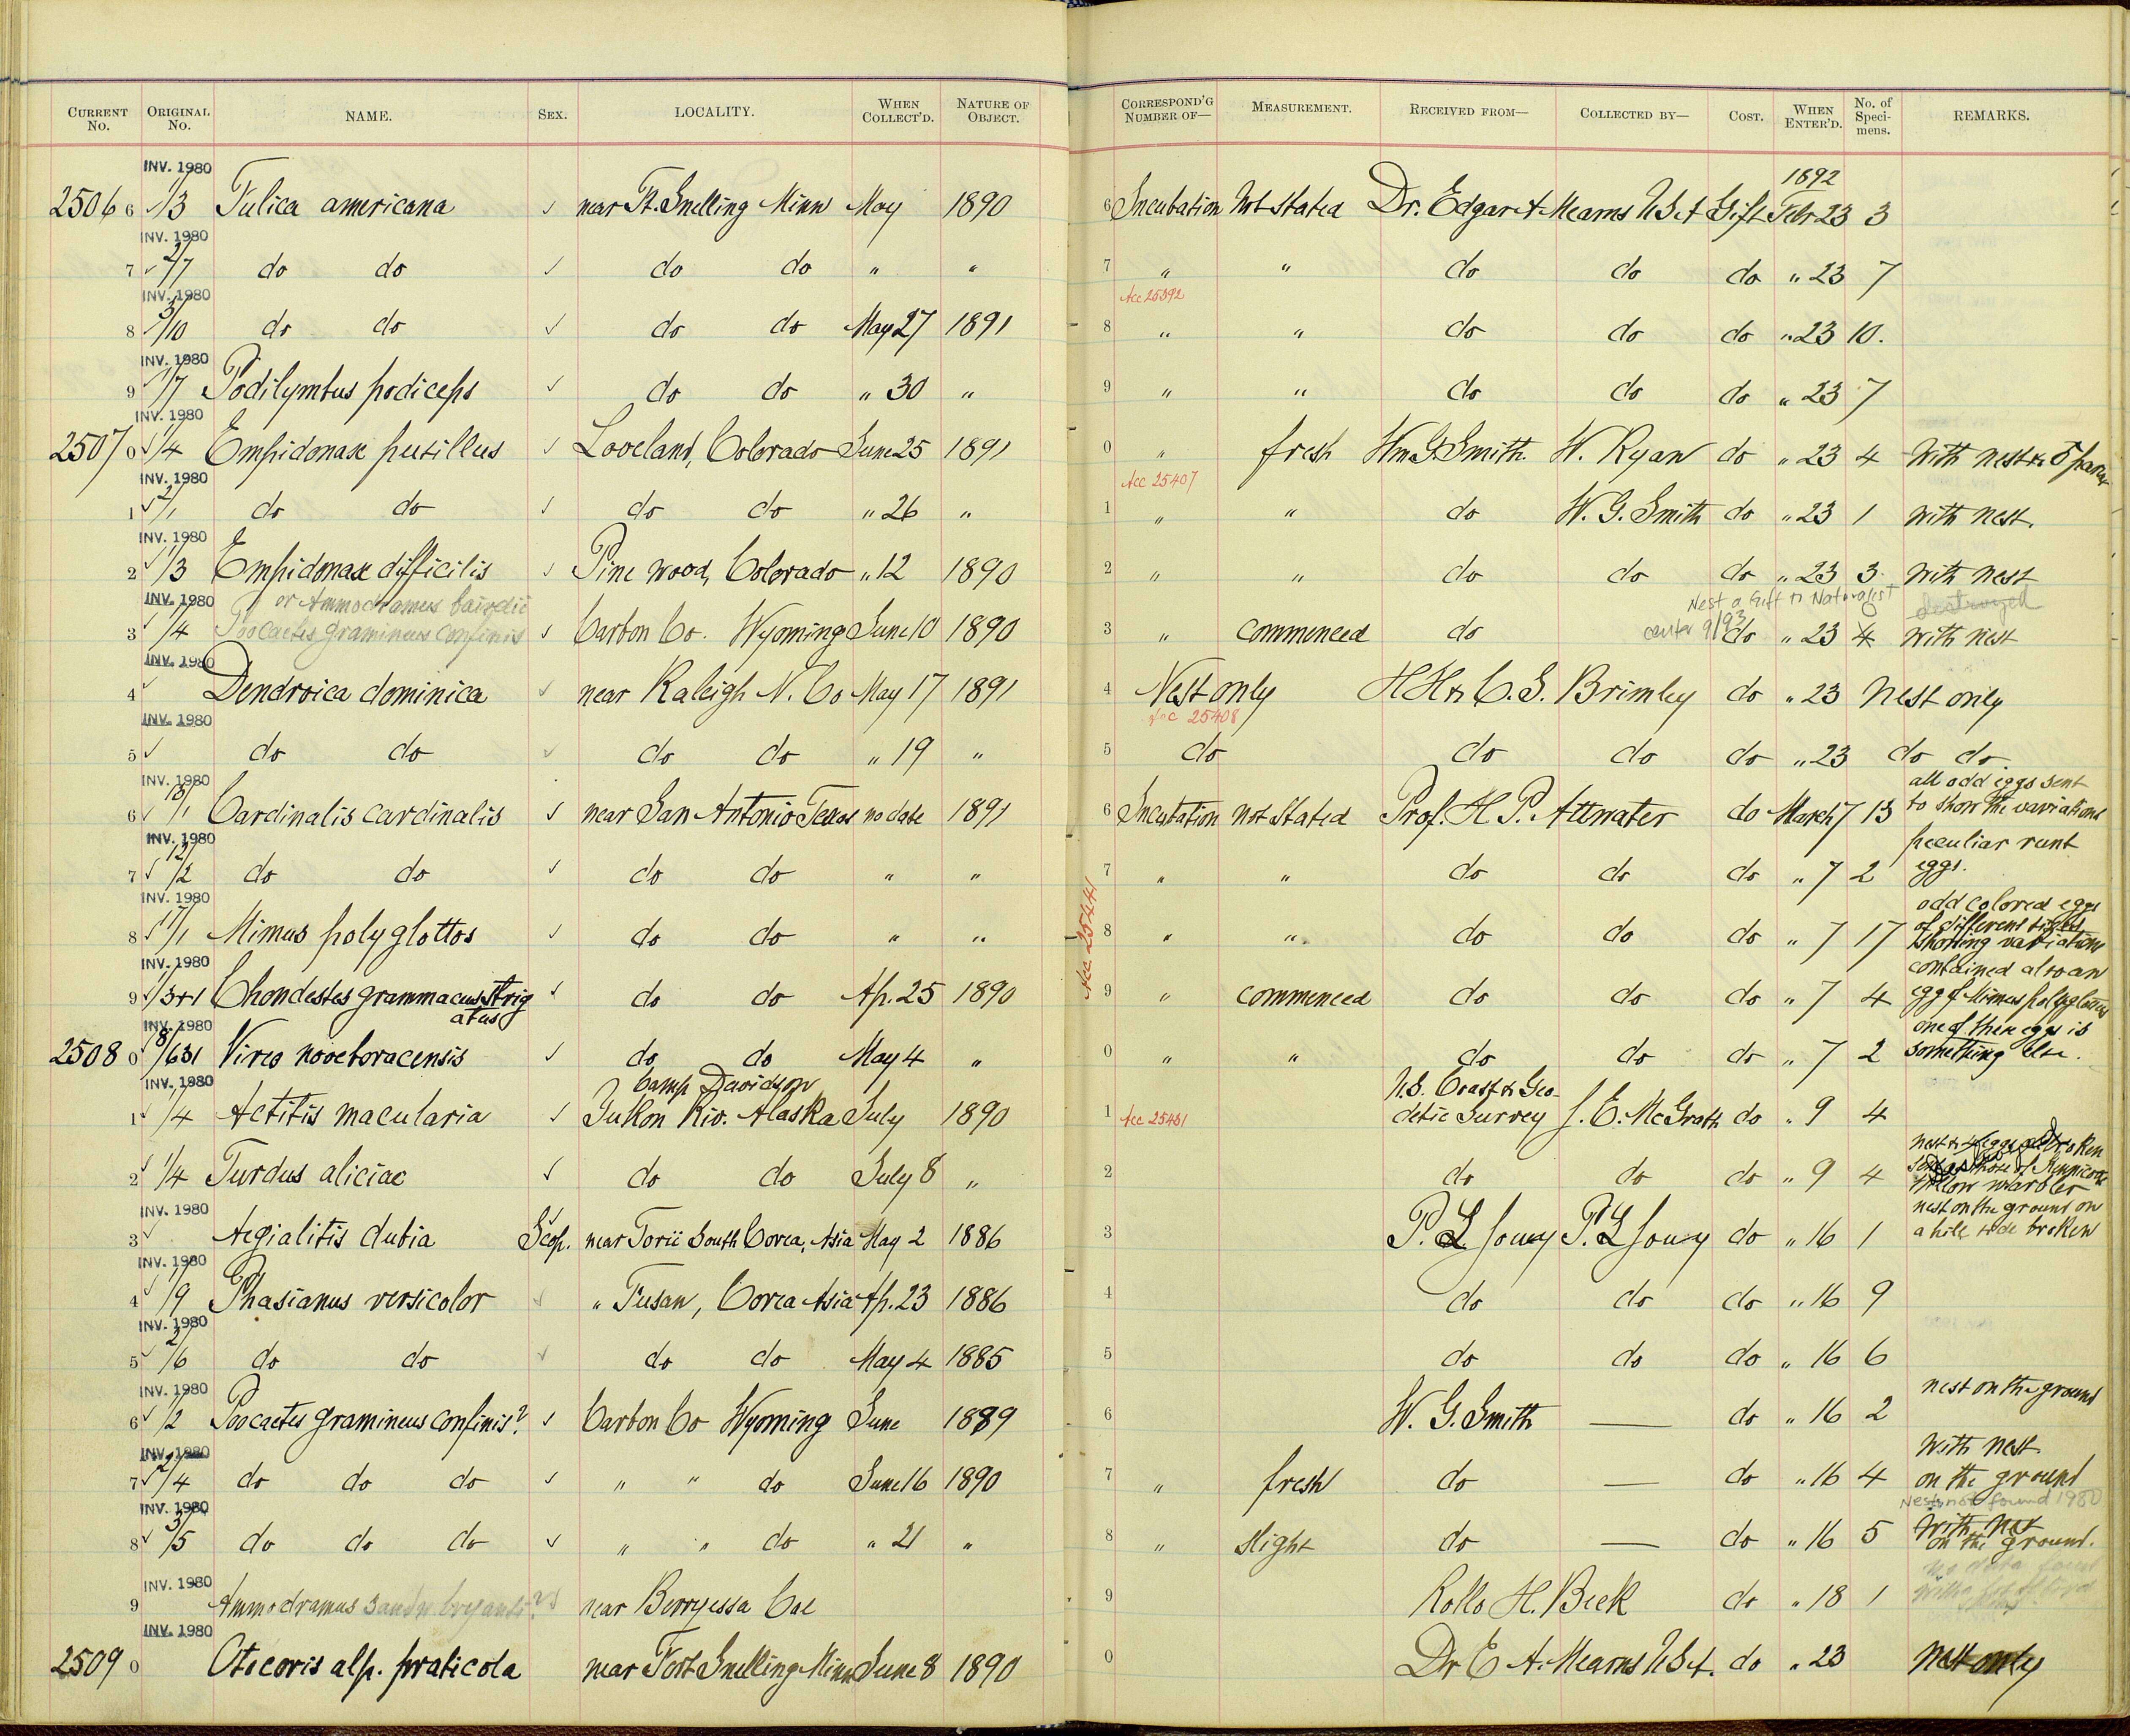 CURRENT No. ORIGINAL No. NAME. SEX. LOCALITY. WHEN COLLECT'D. NATURE OF OBJECT. CORRESPOND'G NUMBER OF— MEASUREMENT. RECEIVED FROM— COLLECTED BY— COST. WHEN ENTER'D. No. of Specimens. REMARKS.
INV. 1980 1892
25066 1/3 Fulica americana ✓ near Ft. Snelling Minn May 1890 6 Incubation not stated Dr. Edgar A Mearns U S A Gift Febr 23 3
INV. 1980
7 ✓ 2/7 do do ✓ do do " " 7 " " do do do " 23 7
INV. 1980 Acc 25392
8 3/10 do do ✓ do do May 27 1891 8 " " do do do " 23 10.
INV. 1980
9 1/7 Podilymbus podiceps ✓ do do " 30 " 9 " " do do do " 23 7
INV. 1980
25070 ✓ 1/4 Empidonax pusillus ✓ Loveland, Colorado June 25 1891 0 " fresh Wm G. Smith W. Ryan do " 23 4 with nest &
INV. 1980 Acc 25407
1 ✓ 2/1 do do ✓ do do " 26 " 1 " " do W. G. Smith do " 23 1 with nest.
INV. 1980
2 ✓ 1/3 Empidonax difficilis ✓ Pine wood, Colorado " 12 1890 2 " " do do do " 23 3 with nest
INV. 1980 or Ammodramus bairdii Nest a Gift to Naturalist destroyed
3 ✓ 1/4 Poocaetes gramineus confinis ✓ Carbon Co. Wyoming June 10 1890 3 " commenced do center 9/93 do " 23 4 with nest
INV. 1980
4 ✓ Dendroica dominica ✓ near Raleigh N. Co May 17 1891 4 Nest only H H & C. S. Brimley do " 23 nest only
INV. 1980 Acc 25408
5 ✓ do do ✓ do do " 19 " 5 do do do do " 23 do do
INV. 1980 all odd eggs sent
6 ✓ Cardinalis cardinalis ✓ near San Antonio Texas no date 1891 6 Incubation not stated Prof. H P. Attwater do March 7 13 to show the variations
INV. 1980 peculiar runt
7 ✓ 12/2 do do ✓ do do " " 7 " " do do do " 7 2 eggs.
INV. 1980 Acc. 25441 odd colored eggs
8 ✓ 17/1 Mimus polyglottos ✓ do do " " 8 " " do do do " 7 17 of different
showing variations
INV. 1980 contained also an
9 ✓ 1/3+1 Chondestes grammacus strigatus ✓ do do Ap. 25 1890 9 " commenced do do do " 7 4 egg of Mimus polyglottus
INV. 1980 one of these eggs is
25080 ✓ 8/631 Vireo noveboracensis ✓ do do May 4 " 0 " " do do do " 7 2 something else.
INV. 1980 Camp Davidson U.S. Coast & Geo-
1 ✓ 1/4 Actitis macularia ✓ Yukon Riv. Alaska July 1890 1 Acc 25431 detic Survey J. E. McGrath do " 9 4
nest & 4 eggs broken
2 ✓ 1/4 Turdus aliciae ✓ do do July 8 " 2 do do do " 9 4 those of Kennicott
willow warbler
INV. 1980 nest on the ground on
3 ✓ Aegialitis dubia ✓ Scop. near Torii South Corea, Asia May 2 1886 3 P. L. Jouy P. L. Jouy do " 16 1 a hill side broken
INV. 1980
4 ✓ 1/9 Phasianus versicolor ✓ " Fusan, Corea Asia Ap. 23 1886 4 do do do " 16 9
INV. 1980
5 ✓ 2/6 do do ✓ do do May 4 1885 5 do do do " 16 6
INV. 1980 nest on the ground
6 ✓ 1/2 Poocaetes gramineus confinis? ✓ Carbon Co Wyoming June 1889 6 W. G. Smith — do " 16 2
INV. 1980 with nest
7 ✓ 2/4 do do do ✓ " " do June 16 1890 7 " fresh do — do " 16 4 on the ground
INV. 1980 Nest not found 1980
8 ✓ 3/5 do do do ✓ " " do " 21 " 8 " slight do — do " 16 5 with nest
on the ground.
INV. 1980 no data
9 Ammodramus sandw. bryanti? ✓ near Berryessa Cal 9 Rollo H. Beck do " 18 1
INV. 1980
25090 Otocoris alp. praticola near Fort Snelling Minn June 8 1890 0 Dr E A. Mearns U S A. do " 23 nest only